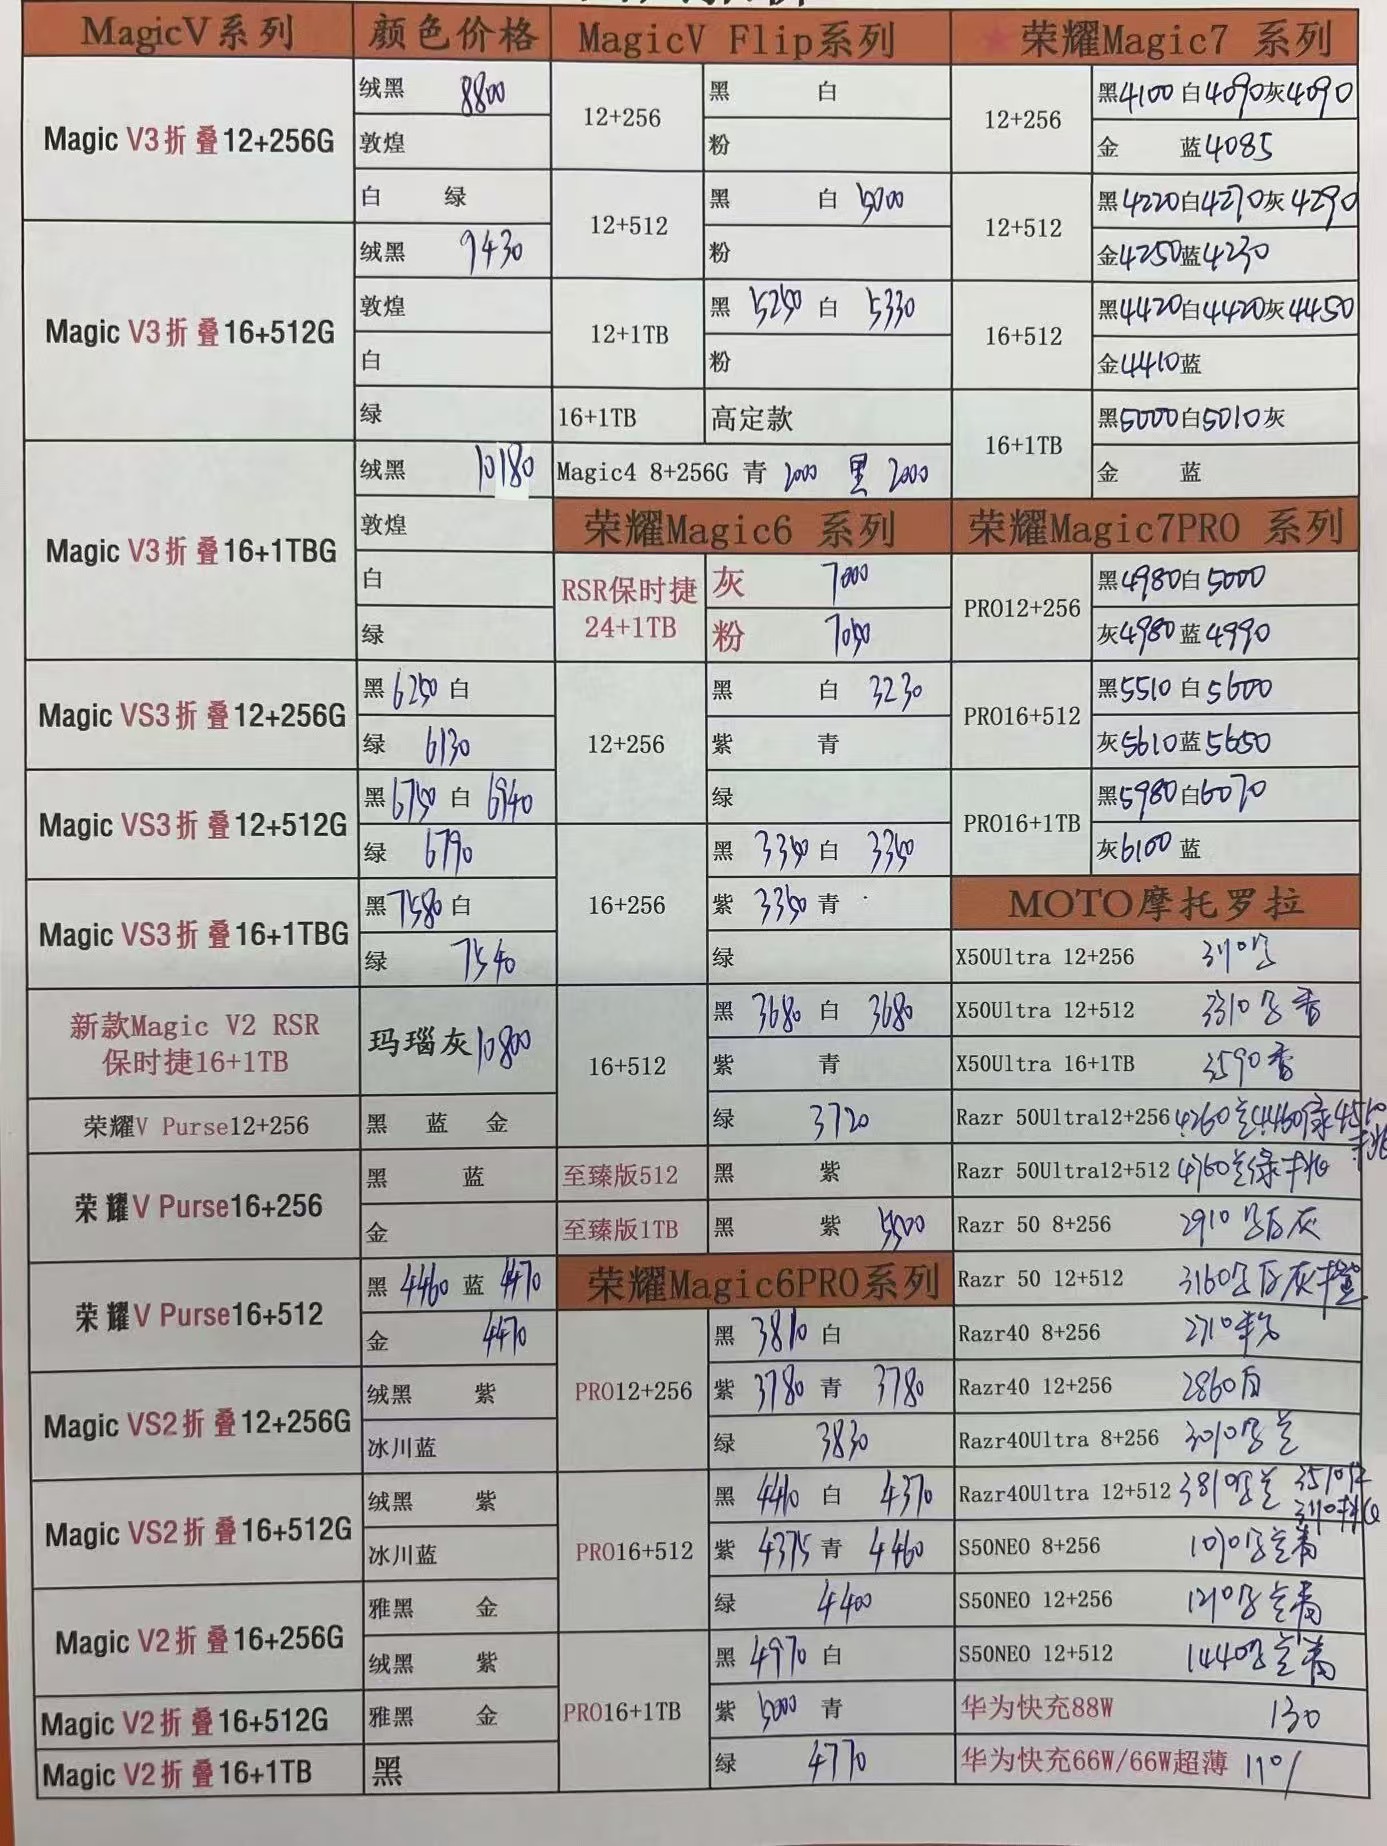 MagicV系列
颜色价格
Magic V3折 叠12+256G
绒黑 8800
敦煌
白 绿
Magic V3折 叠16+512G
绒黑 9430
敦煌
白
绿
Magic V3折 叠16+1TBG
绒黑 10180
敦煌
白
绿
Magic VS3折 叠12+256G
黑 6250 白
绿 6130
Magic VS3折 叠12+512G
黑 6750 白 6940
绿 6790
Magic VS3折 叠16+1TBG
黑 7580 白
绿 7540
新款Magic V2 RSR
保时捷16+1TB
玛瑙灰 10800
荣耀V Purse12+256
黑 蓝 金
荣耀V Purse16+256
黑 蓝
金
荣耀V Purse16+512
黑 4460 蓝 4470
金 4470
Magic VS2折 叠12+256G
绒黑 紫
冰川蓝
Magic VS2折 叠16+512G
绒黑 紫
冰川蓝
Magic V2折 叠16+256G
雅黑 金
绒黑 紫
Magic V2折 叠16+512G
雅黑 金
Magic V2折 叠16+1TB
黑
MagicV Flip系列
12+256
黑 白
粉
12+512
黑 白 5000
粉
12+1TB
黑 5250 白 5330
粉
16+1TB
高定款
Magic4 8+256G 青 2000 黑 2000
荣耀Magic6 系列
RSR保时捷
24+1TB
灰 7000
粉 7050
12+256
黑 白 3230
紫 青
绿
16+256
黑 3350 白 3350
紫 3350 青
绿
16+512
黑 3680 白 3680
紫 青
绿 3720
至臻版512
黑 紫
至臻版1TB
黑 紫 5500
荣耀Magic6PRO系列
PRO12+256
黑 3810 白
紫 3780 青 3780
绿 3830
PRO16+512
黑 4410 白 4370
紫 4375 青 4460
绿 4400
PRO16+1TB
黑 4970 白
紫 5000 青
绿 4770
★荣耀Magic7 系列
12+256
黑4100 白4090灰4090
金 蓝4085
12+512
黑4220白4270灰4290
金4250蓝4230
16+512
黑4420白4420灰4450
金4410蓝
16+1TB
黑5000白5010灰
金 蓝
荣耀Magic7PRO 系列
PRO12+256
黑4980白5000
灰4980蓝4990
PRO16+512
黑5510 白5600
灰5610蓝5650
PRO16+1TB
黑5980白6070
灰6100 蓝
MOTO摩托罗拉
X50Ultra 12+256
X50Ultra 12+512 3310
X50Ultra 16+1TB 3590
Razr 50Ultra12+256 4260 4460
Razr 50Ultra12+512 4760
Razr 50 8+256 2910 白灰
Razr 50 12+512 3160 白灰
Razr40 8+256 2710
Razr40 12+256 2860
Razr40Ultra 8+256 3010
Razr40Ultra 12+512 3810
S50NEO 8+256 1070
S50NEO 12+256 1210
S50NEO 12+512 1440
华为快充88W 130
华为快充66W/66W超薄 110/